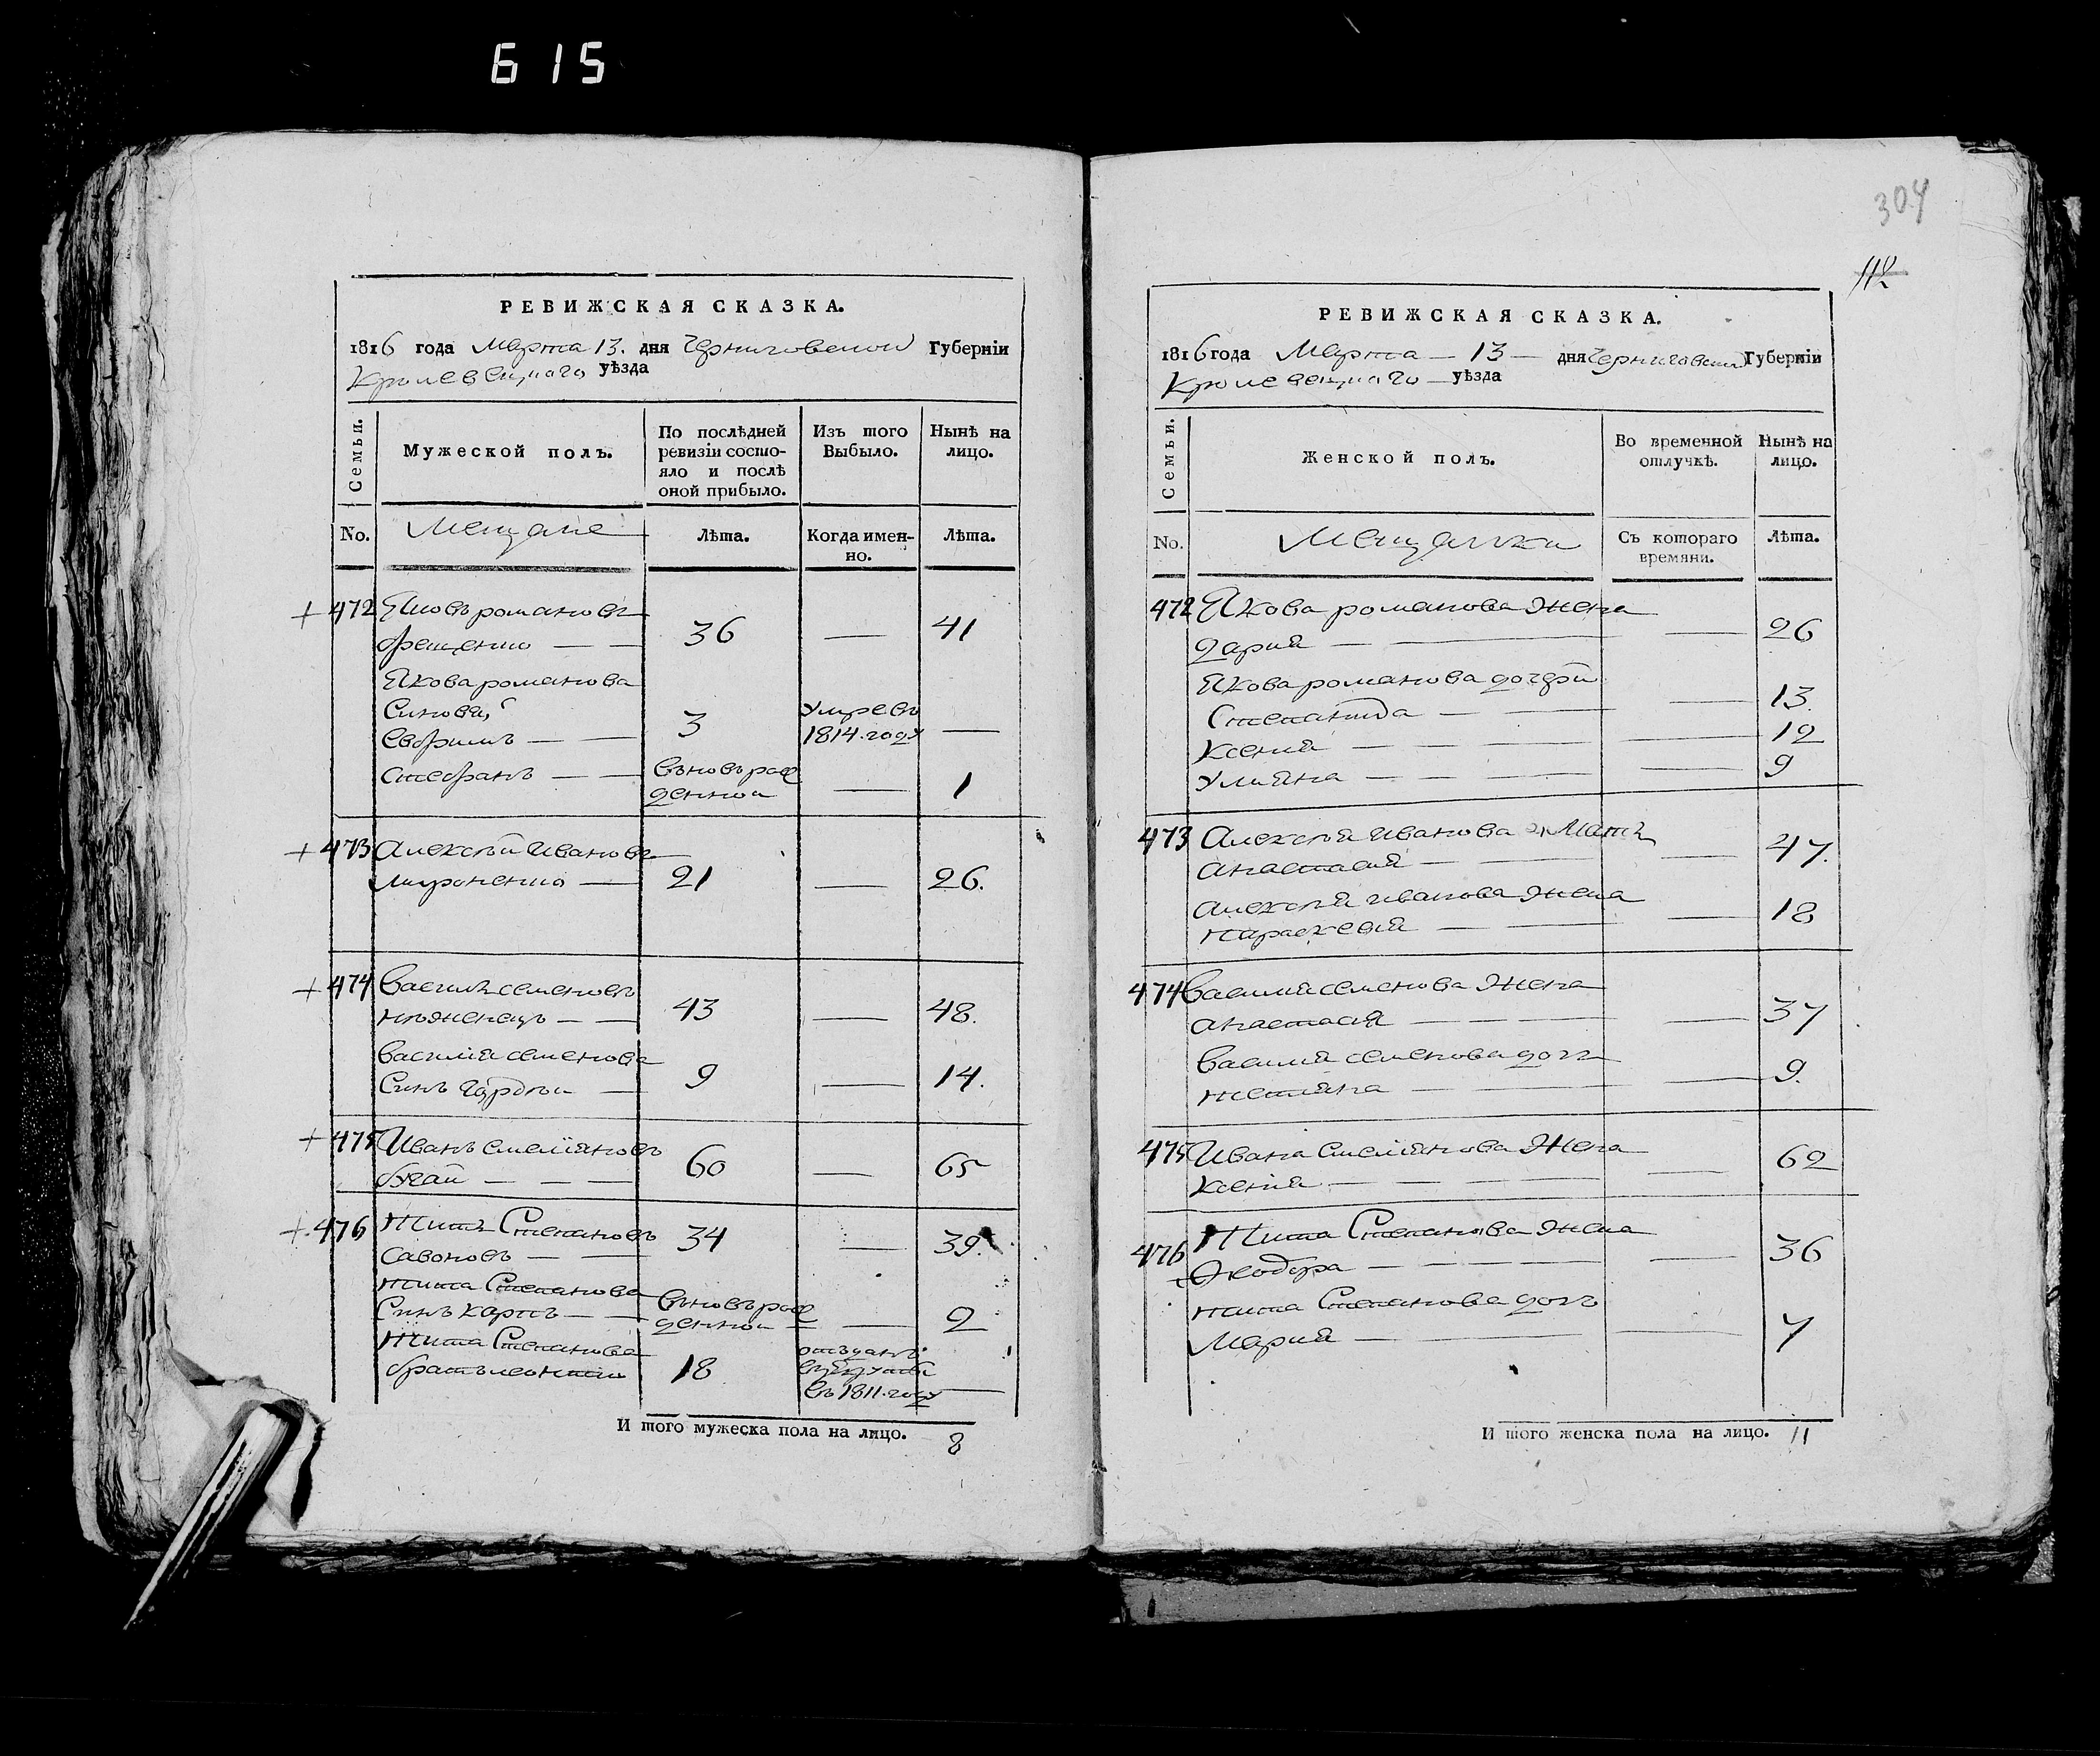 615
РЕВИЖСКАЯ СКАЗКА.
1816 года Марта 13. дня Черниговской Губерніи
Кролевецкаго уѣзда
Семьи.
Мужеской полъ.
По послѣдней ревизіи состо-
яло и послѣ
оной прибыло.
Изъ того
Выбыло.
Нынѣ на
лицо.
No.
Мещане
Лѣта.
Когда имен-
но.
Лѣта.
+ 472 Яковъ романовъ
фещенко — — 36 — 41
Якова романова
Синови,
Евфимъ — — 3 Умре въ 1814. году —
Стефанъ — — вновь рож
денной — 1
+ 473 Алексѣй Ивановъ
Мироненко — 21 — 26.
+ 474 Василь семеновъ
— — 43 — 48.
Василія семенова
Синъ Гордѣй — 9 — 14.
+ 475 Иванъ Емеліяновъ
— — — 60 — 65
+ 476 Титъ Степановъ
Савоновъ — — 34 — 39.
Тита Степанова
Синъ карпъ — — вновь рож
денной — — 2
Тита Степанова
братъ леонтій 18 отданъ
въ рекруты
въ 1811. году —
И того мужеска пола на лицо. 8
304
112
РЕВИЖСКАЯ СКАЗКА.
1816 года Марта — 13 — дня Черниговской Губерніи
Кролевецкаго — уѣзда
Семьи.
Женской полъ.
Во временной
отлучкѣ.
Нынѣ на
лицо.
No.
Мещанки
Съ котораго
времяни.
Лѣта.
472 Якова романова Жена
дария — — — 26
Якова романова дочери
Степанида — — — 13.
Ксения — — — — 12
Улияна — — — — 9
473 Алексѣя Иванова Мать
Анастасия — — — 47.
Алексѣя Иванова Жена
параскевия — — — 18
474 Василия семенова Жена
Анастасия — — — — 37
Василия семенова дочь
тетияна — — — 9.
475 Ивана Емелиянова Жена
Ксения — — — — — 62
476 Тита Степанова Жена
Феодора — — — — — 36
Тита Степанова дочь
Мария — — — 7
И того женска пола на лицо. 11